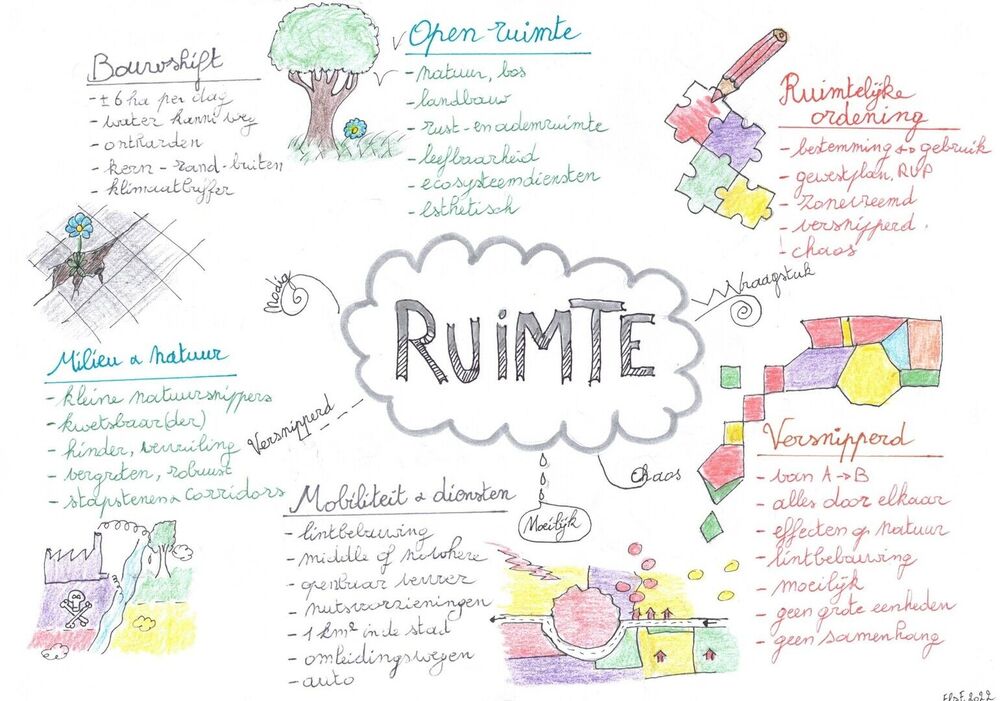 Bouwshift
- ±6 ha per dag
- water kanni weg
- ontharden
- kern - rand - buiten
- klimaatbuffer
Open ruimte
- natuur, bos
- landbouw
- rust- en ademruimte
- leefbaarheid
- ecosysteemdiensten
- Esthetisch
Ruimtelijke
ordening
- bestemming ↔ gebruik
- gewestplan, RUP
- zonevreemd
- versnipperd
- chaos
Nodig
RUIMTE
Vraagstuk
Versnipperd
Moeilijk
chaos
Milieu & natuur
- kleine natuursnippers
- kwetsbaar(der)
- hinder, vervuiling
- vergroten, robuust
- stapstenen & corridors
Mobiliteit & diensten
- lintbebouwing
- middle of nowhere
- openbaar vervoer
- nutsvoorzieningen
- 1 km² in de stad
- omleidingswegen
- auto
Versnipperd
- van A → B
- alles door elkaar
- effecten op natuur
- lintbebouwing
- moeilijk
- geen grote eenheden
- geen samenhang
2022